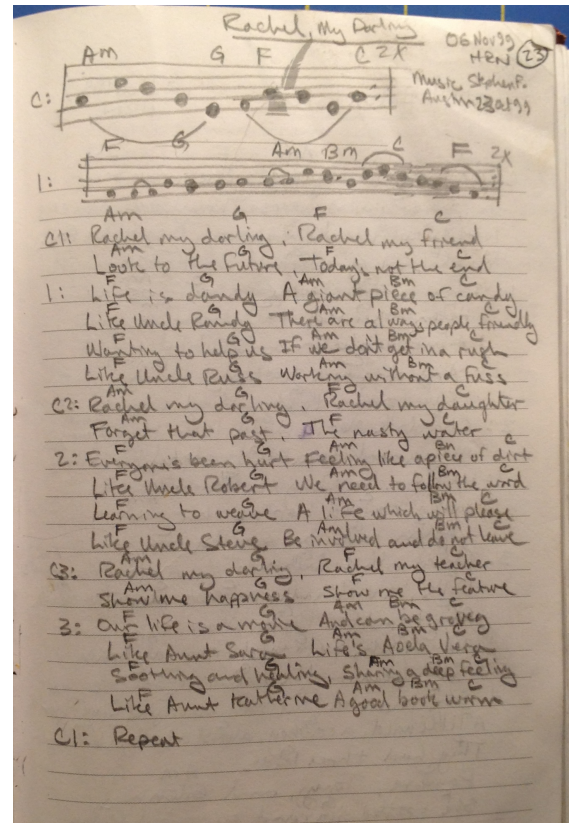 Rachel, My Darling
06 Nov 99
HRN 23
Music Stephen P.
Austin 23 Oct 99
Am G F C 2X
C:
F G Am Bm C F 2X
1:
Am G F C
C1: Rachel my darling, Rachel my friend
Am G F C
Look to the future, Today's not the end
F G Am Bm C
1: Life is dandy A giant piece of candy
F G Am Bm C
Like Uncle Randy There are always people friendly
F G Am Bm C
Wanting to help us If we don't get in a rush
F G Am Bm C
Like Uncle Russ Working without a fuss
Am G F C
C2: Rachel my darling, Rachel my daughter
Am G F C
Forget that past, The nasty water
F G Am Bm C
2: Everyone's been hurt Feeling like a piece of dirt
F G Am Bm C
Like Uncle Robert We need to follow the word
F G Am Bm C
Learning to weave A life which will please
F G Am Bm C
Like Uncle Steve Be involved and do not leave
Am G F C
C3: Rachel my darling, Rachel my teacher
Am G F C
Show me happness Show me the feature
F G Am Bm C
3: Our life is a movie And can be groovey
F G Am Bm C
Like Aunt Sara Life's Aoela Vera
F G Am Bm C
Soothing and healing, Sharing a deep feeling
F G Am Bm C
Like Aunt Katherine A good book worm
C1: Repeat